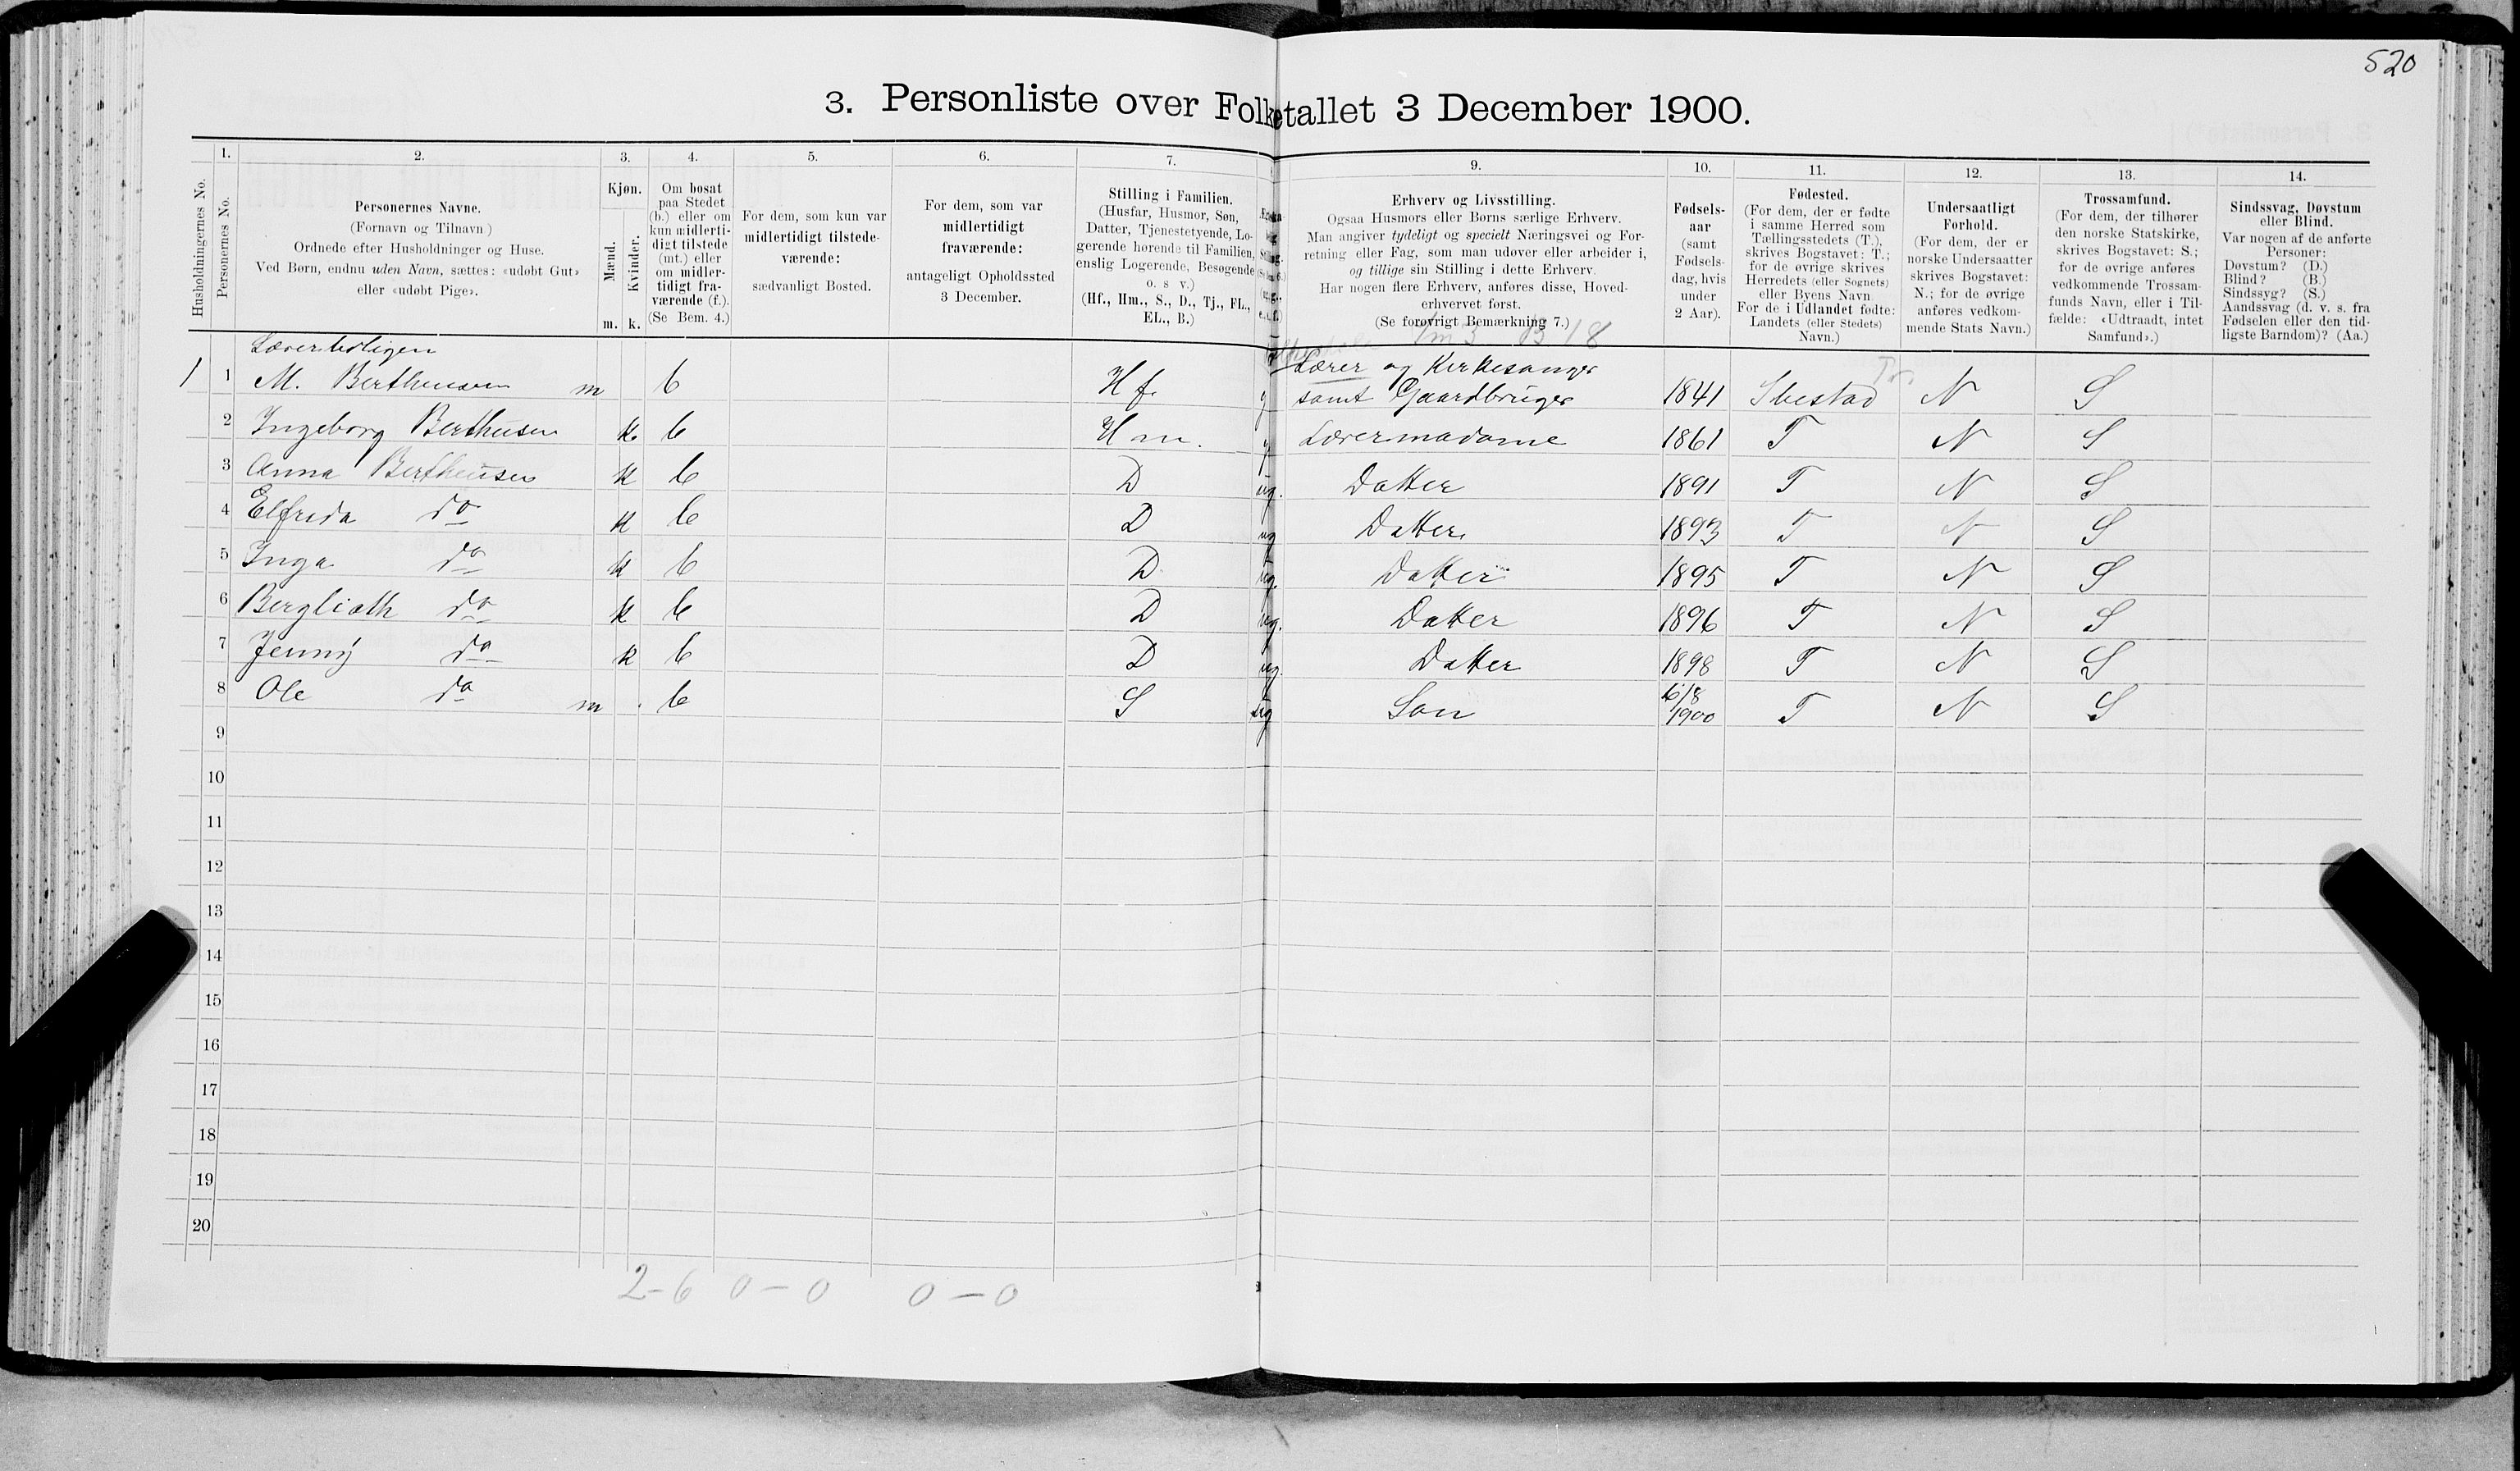 520
3. Personliste over Folketallet 3 December 1900.
Husholdningernes No.
1.
Personernes No.
2.
Personernes Navne.
(Fornavn og Tilnavn)
Ordnede efter Husholdninger og Huse.
Ved Børn, endnu uden Navn, sættes: «udøbt Gut»
eller «udøbt Pige».
3.
Kjøn.
Mænd.
Kvinder.
m. k.
4.
Om bosat
paa Stedet
(b.) eller om
kun midlerti-
digt tilstede
(mt.) eller
om midler-
tidigt fra-
værende (f.).
(Se Bem. 4.)
5.
For dem, som kun var
midlertidigt tilstede-
værende:
sædvanligt Bosted.
6.
For dem, som var
midlertidigt
fraværende:
antageligt Opholdssted
3 December.
7.
Stilling i Familien.
(Husfar, Husmor, Søn,
Datter, Tjenestetyende, Lo-
gerende hørende til Familien,
enslig Logerende, Besøgende
o. s v.)
(Hf., Hm., S., D., Tj., FL.,
EL., B.)
9.
Erhverv og Livsstilling.
Ogsaa Husmors eller Børns særlige Erhverv.
Man angiver tydeligt og specielt Næringsvei og For-
retning eller Fag, som man udøver eller arbeider i,
og tillige sin Stilling i dette Erhverv.
Har nogen flere Erhverv, anføres disse, Hoved-
erhvervet først.
(Se forøvrigt Bemærkning 7.)
10.
Fødsels-
aar
(samt
Fødsels-
dag, hvis
under
2 Aar).
11.
Fødested.
(For dem, der er fødte
i samme Herred som
Tællingsstedets (T.),
skrives Bogstavet: T.;
for de øvrige skrives
Herredets (eller Sognets)
eller Byens Navn.
For de i Udlandet fødte:
Landets (eller Stedets)
Navn.)
12.
Undersaatligt
Forhold.
(For dem, der er
norske Undersaatter
skrives Bogstavet:
N.; for de øvrige
anføres vedkom-
mende Stats Navn.)
13.
Trossamfund.
(For dem, der tilhører
den norske Statskirke,
skrives Bogstavet: S.;
for de øvrige anføres
vedkommende Trossam-
funds Navn, eller i Til-
fælde: «Udtraadt, intet
Samfund».)
14.
Sindssvag, Døvstum
eller Blind.
Var nogen af de anførte
Personer:
Døvstum? (D.)
Blind? (B.)
Sindssyg? (S.)
Aandssvag (d. v. s. fra
Fødselen eller den tid-
ligste Barndom)? (Aa.)
Lærerboligen
1 1 M. Bertheusen m b Hf. g Lærer og Kirkesanger
samt Gaardbruger 1841 Ibestad Tr. N S
2 Ingeborg Bertheusen k b Hm. g Lærermadame 1861 T N S
3 Anna Bertheusen k b D ug. Datter 1891 T N S
4 Elfrida do k b D ug Datter 1893 T N S
5 Inga do k b D ug. Datter 1895 T N S
6 Berglioth do k b D ug. Datter 1896 T N S
7 Jenny do k b D ug. Datter 1898 T N S
8 Ole do m b S ug Søn 6/8 1900 T N S
9
10
11
12
13
14
15
16
17
18
19
20
2-6 0-0 0-0